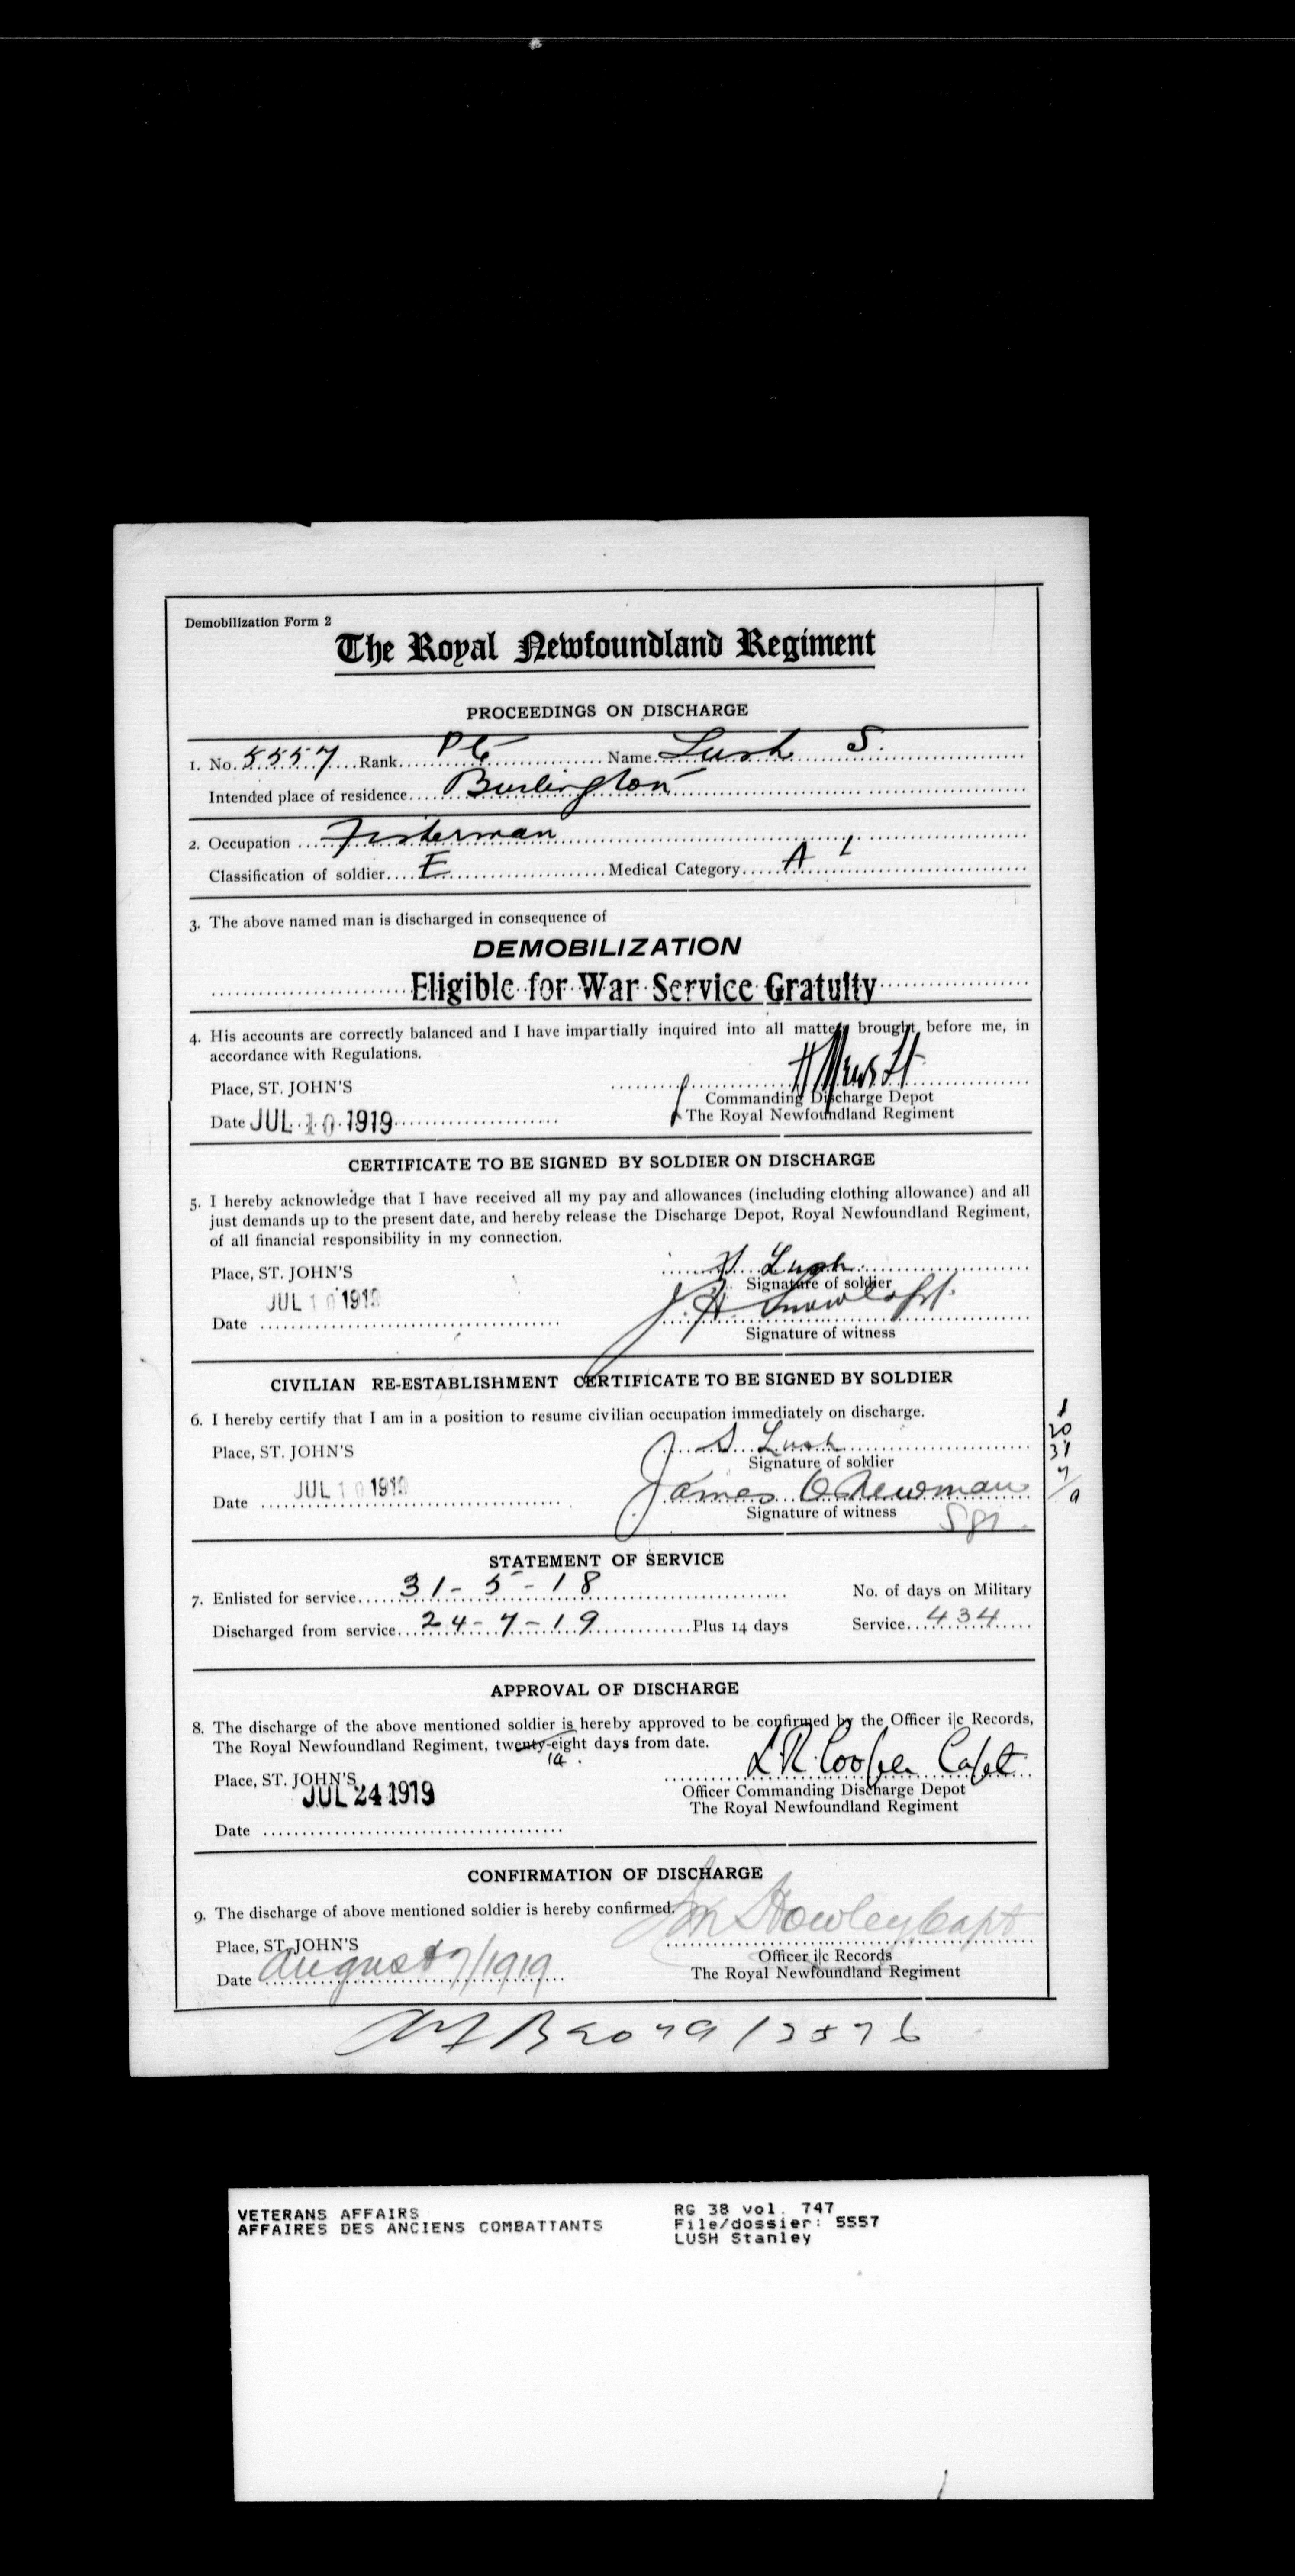 Demobilization Form 2
The Royal Newfoundland Regiment
PROCEEDINGS ON DISCHARGE
1. No. 5557 Rank Pte Name Lush S.
Intended place of residence Burlington
2. Occupation Fisherman
Classification of soldier E Medical Category A 1
3. The above named man is discharged in consequence of
DEMOBILIZATION
Eligible for War Service Gratuity
4. His accounts are correctly balanced and I have impartially inquired into all matters brought before me, in
accordance with Regulations.
Place, ST. JOHN'S
Commanding Discharge Depot
Date JUL 10 1919
The Royal Newfoundland Regiment
CERTIFICATE TO BE SIGNED BY SOLDIER ON DISCHARGE
5. I hereby acknowledge that I have received all my pay and allowances (including clothing allowance) and all
just demands up to the present date, and hereby release the Discharge Depot, Royal Newfoundland Regiment,
of all financial responsibility in my connection.
Place, ST. JOHN'S
S Lush
Signature of soldier
JUL 10 1919
Date
Signature of witness
CIVILIAN RE-ESTABLISHMENT CERTIFICATE TO BE SIGNED BY SOLDIER
6. I hereby certify that I am in a position to resume civilian occupation immediately on discharge.
Place, ST. JOHN'S
S Lush
Signature of soldier
JUL 10 1919
James O Newman
Date
Signature of witness
Sgt.
STATEMENT OF SERVICE
7. Enlisted for service 31-5-18 No. of days on Military
Discharged from service 24-7-19 Plus 14 days Service 434
APPROVAL OF DISCHARGE
8. The discharge of the above mentioned soldier is hereby approved to be confirmed by the Officer i|c Records,
The Royal Newfoundland Regiment, twenty-eight days from date.
14
L R Cooper Capt
Place, ST. JOHN'S
JUL 24 1919
Officer Commanding Discharge Depot
The Royal Newfoundland Regiment
Date
CONFIRMATION OF DISCHARGE
9. The discharge of above mentioned soldier is hereby confirmed.
Howley Capt
Place, ST. JOHN'S
Officer i|c Records
Date August 7/1919
The Royal Newfoundland Regiment
VETERANS AFFAIRS RG 38 vol. 747
AFFAIRES DES ANCIENS COMBATTANTS File/dossier: 5557
LUSH Stanley